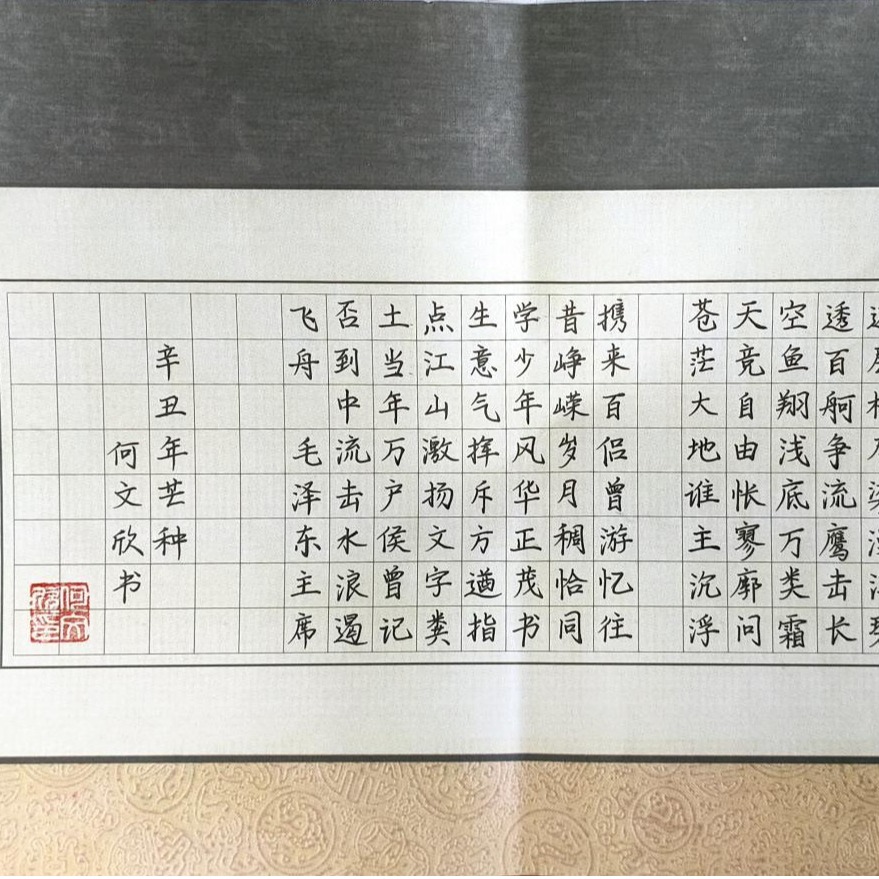 透百舸争流鹰击长
空鱼翔浅底万类霜
天竞自由怅寥廓问
苍茫大地谁主沉浮
携来百侣曾游忆往
昔峥嵘岁月稠恰同
学少年风华正茂书
生意气挥斥方遒指
点江山激扬文字粪
土当年万户侯曾记
否到中流击水浪遏
飞舟 毛泽东主席
辛丑年芒种
何文欣书